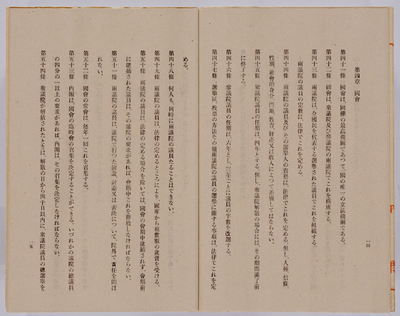 第四章　國會
第四十一條　國會は、國權の最高機關であつて、國の唯一の立法機關である。
第四十二條　國會は、衆議院及び參議院の兩議院でこれを構成する。
第四十三條　兩議院は、全國民を代表する選擧された議員でこれを組織する。
兩議院の議員の定數は、法律でこれを定める。
第四十四條　兩議院の議員及びその選擧人の資格は、法律でこれを定める。但し、人種、信條、
性別、社會的身分、門地、敎育、財產又は收入によつて差別してはならない。
第四十五條　衆議院議員の任期は、四年とする。但し、衆議院解散の場合には、その期間滿了前
に終了する。
第四十六條　參議院議員の任期は、六年とし、三年ごとに議員の半數を改選する。
第四十七條　選擧區、投票の方法その他兩議院の議員の選擧に關する事項は、法律でこれを定
一四
める。
第四十八條　何人も、同時に兩議院の議員たることはできない。
第四十九條　兩議院の議員は、法律の定めるところにより、國庫から相當額の歲費を受ける。
第五十條　兩議院の議員は、法律の定める場合を除いては、國會の會期中逮捕されず、會期前
に逮捕された議員は、その議院の要求があれば、會期中これを釋放しなければならない。
第五十一條　兩議院の議員は、議院で行つた演說、討論又は表決について、院外で責任を問は
れない。
第五十二條　國會の常會は、每年一囘これを召集する。
第五十三條　內閣は、國會の臨時會の召集を決定することができる。いづれかの議院の總議員
の四分の一以上の要求があれば、內閣は、その召集を決定しなければならない。
第五十四條　衆議院が解散されたときは、解散の日から四十日以內に、衆議院議員の總選擧を
一五